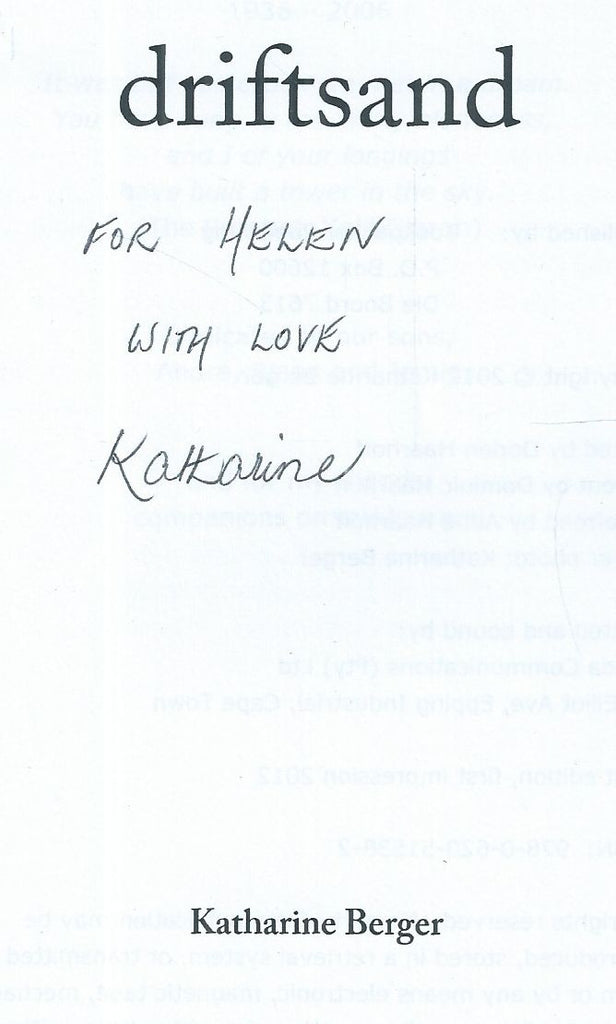 driftsand
FOR HELEN
WITH LOVE
Katharine
Katharine Berger